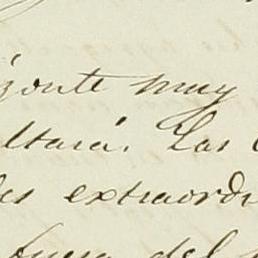 izonte muy
ltará. Las
des extraord
fuera del